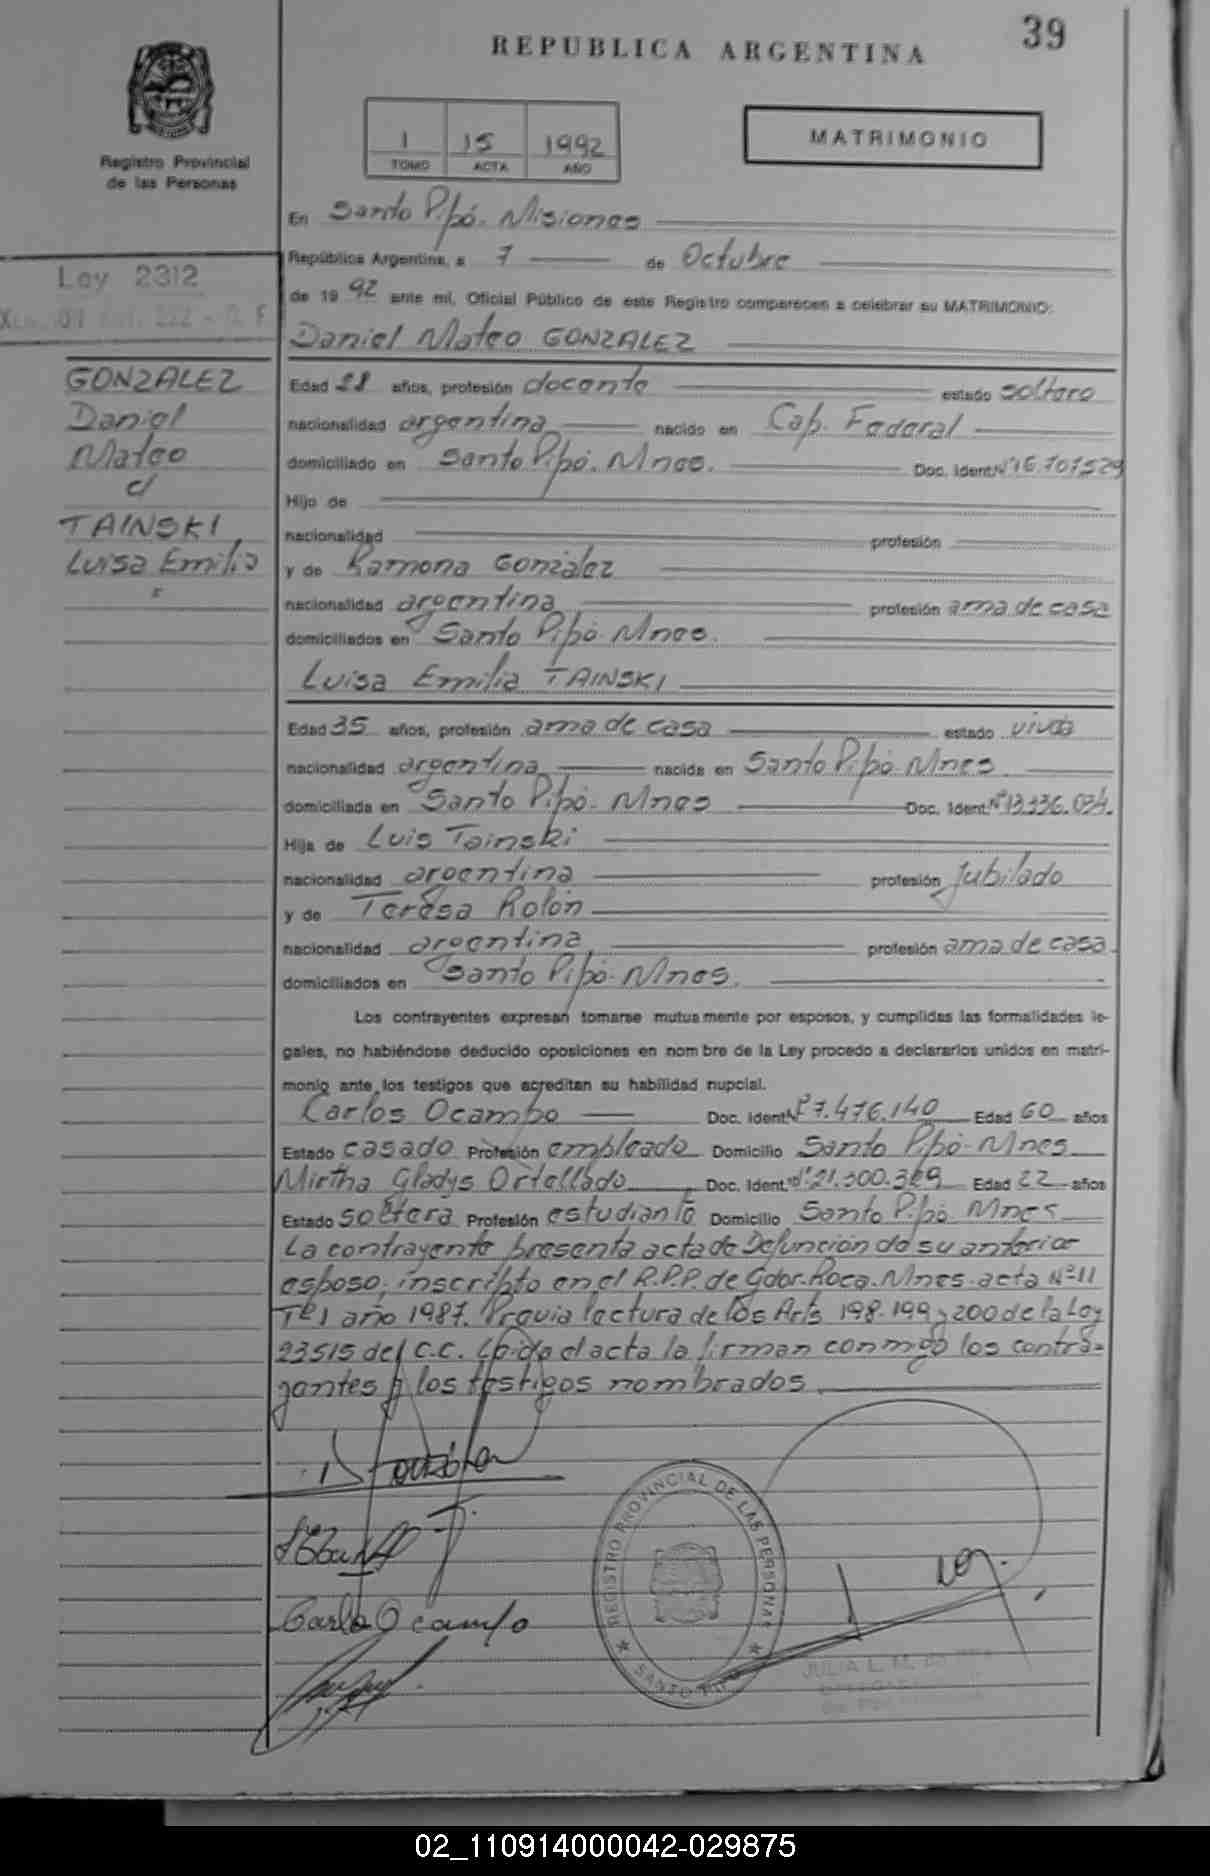 39
REPUBLICA ARGENTINA
Registro Provincial
de las Personas
1 15 1992
TOMO ACTA AÑO
MATRIMONIO
En Santo Pipó. Misiones
República Argentina, a 7 de Octubre
de 19 92 ante mí, Oficial Público de este Registro comparecen a celebrar su MATRIMONIO:
Daniel Mateo GONZALEZ
Ley 2312
GONZALEZ
Daniel
Mateo
c/
TAINSKI
Luisa Emilia
Edad 28 años, profesión docente estado soltero
nacionalidad argentina nacido en Cap. Federal
domiciliado en Santo Pipó. Mnes. Doc. Ident. Nº 16.101.529
Hijo de
nacionalidad profesión
y de Ramona González
nacionalidad argentina profesión ama de casa
domiciliados en Santo Pipó. Mnes.
Luisa Emilia TAINSKI
Edad 35 años, profesión ama de casa estado viuda
nacionalidad argentina nacida en Santo Pipó-Mnes
domiciliada en Santo Pipó. Mnes Doc. Ident. Nº 13.336.034.
Hija de Luis Tainski
nacionalidad argentina profesión Jubilado
y de Teresa Rolón
nacionalidad argentina profesión ama de casa
domiciliados en Santo Pipó. Mnes.
Los contrayentes expresan tomarse mutuamente por esposos, y cumplidas las formalidades le-
gales, no habiéndose deducido oposiciones en nombre de la Ley procedo a declararlos unidos en matri-
monio ante los testigos que acreditan su habilidad nupcial.
Carlos Ocampo Doc. Ident. Nº 7.476.140 Edad 60 años
Estado casado Profesión empleado Domicilio Santo Pipó-Mnes
Mirtha Gladys Ortellado Doc. Ident. Nº 21.300.369 Edad 22 años
Estado soltera Profesión estudiante Domicilio Santo Pipó Mnes
La contrayente presenta acta de Defunción de su anterior
esposo, inscripto en el R.P.P. de Gdor. Roca. Mnes. acta Nº 11
Tº 1 año 1987. Previa lectura de los Arts 198-199 y 200 de la Ley
23515 del C.C. Leida el acta la firman conmigo los contra-
yentes y los testigos nombrados
Carlos Ocampo
REGISTRO PROVINCIAL DE LAS PERSONAS
SANTO PIPO
JULIA L. M.
02_110914000042-029875